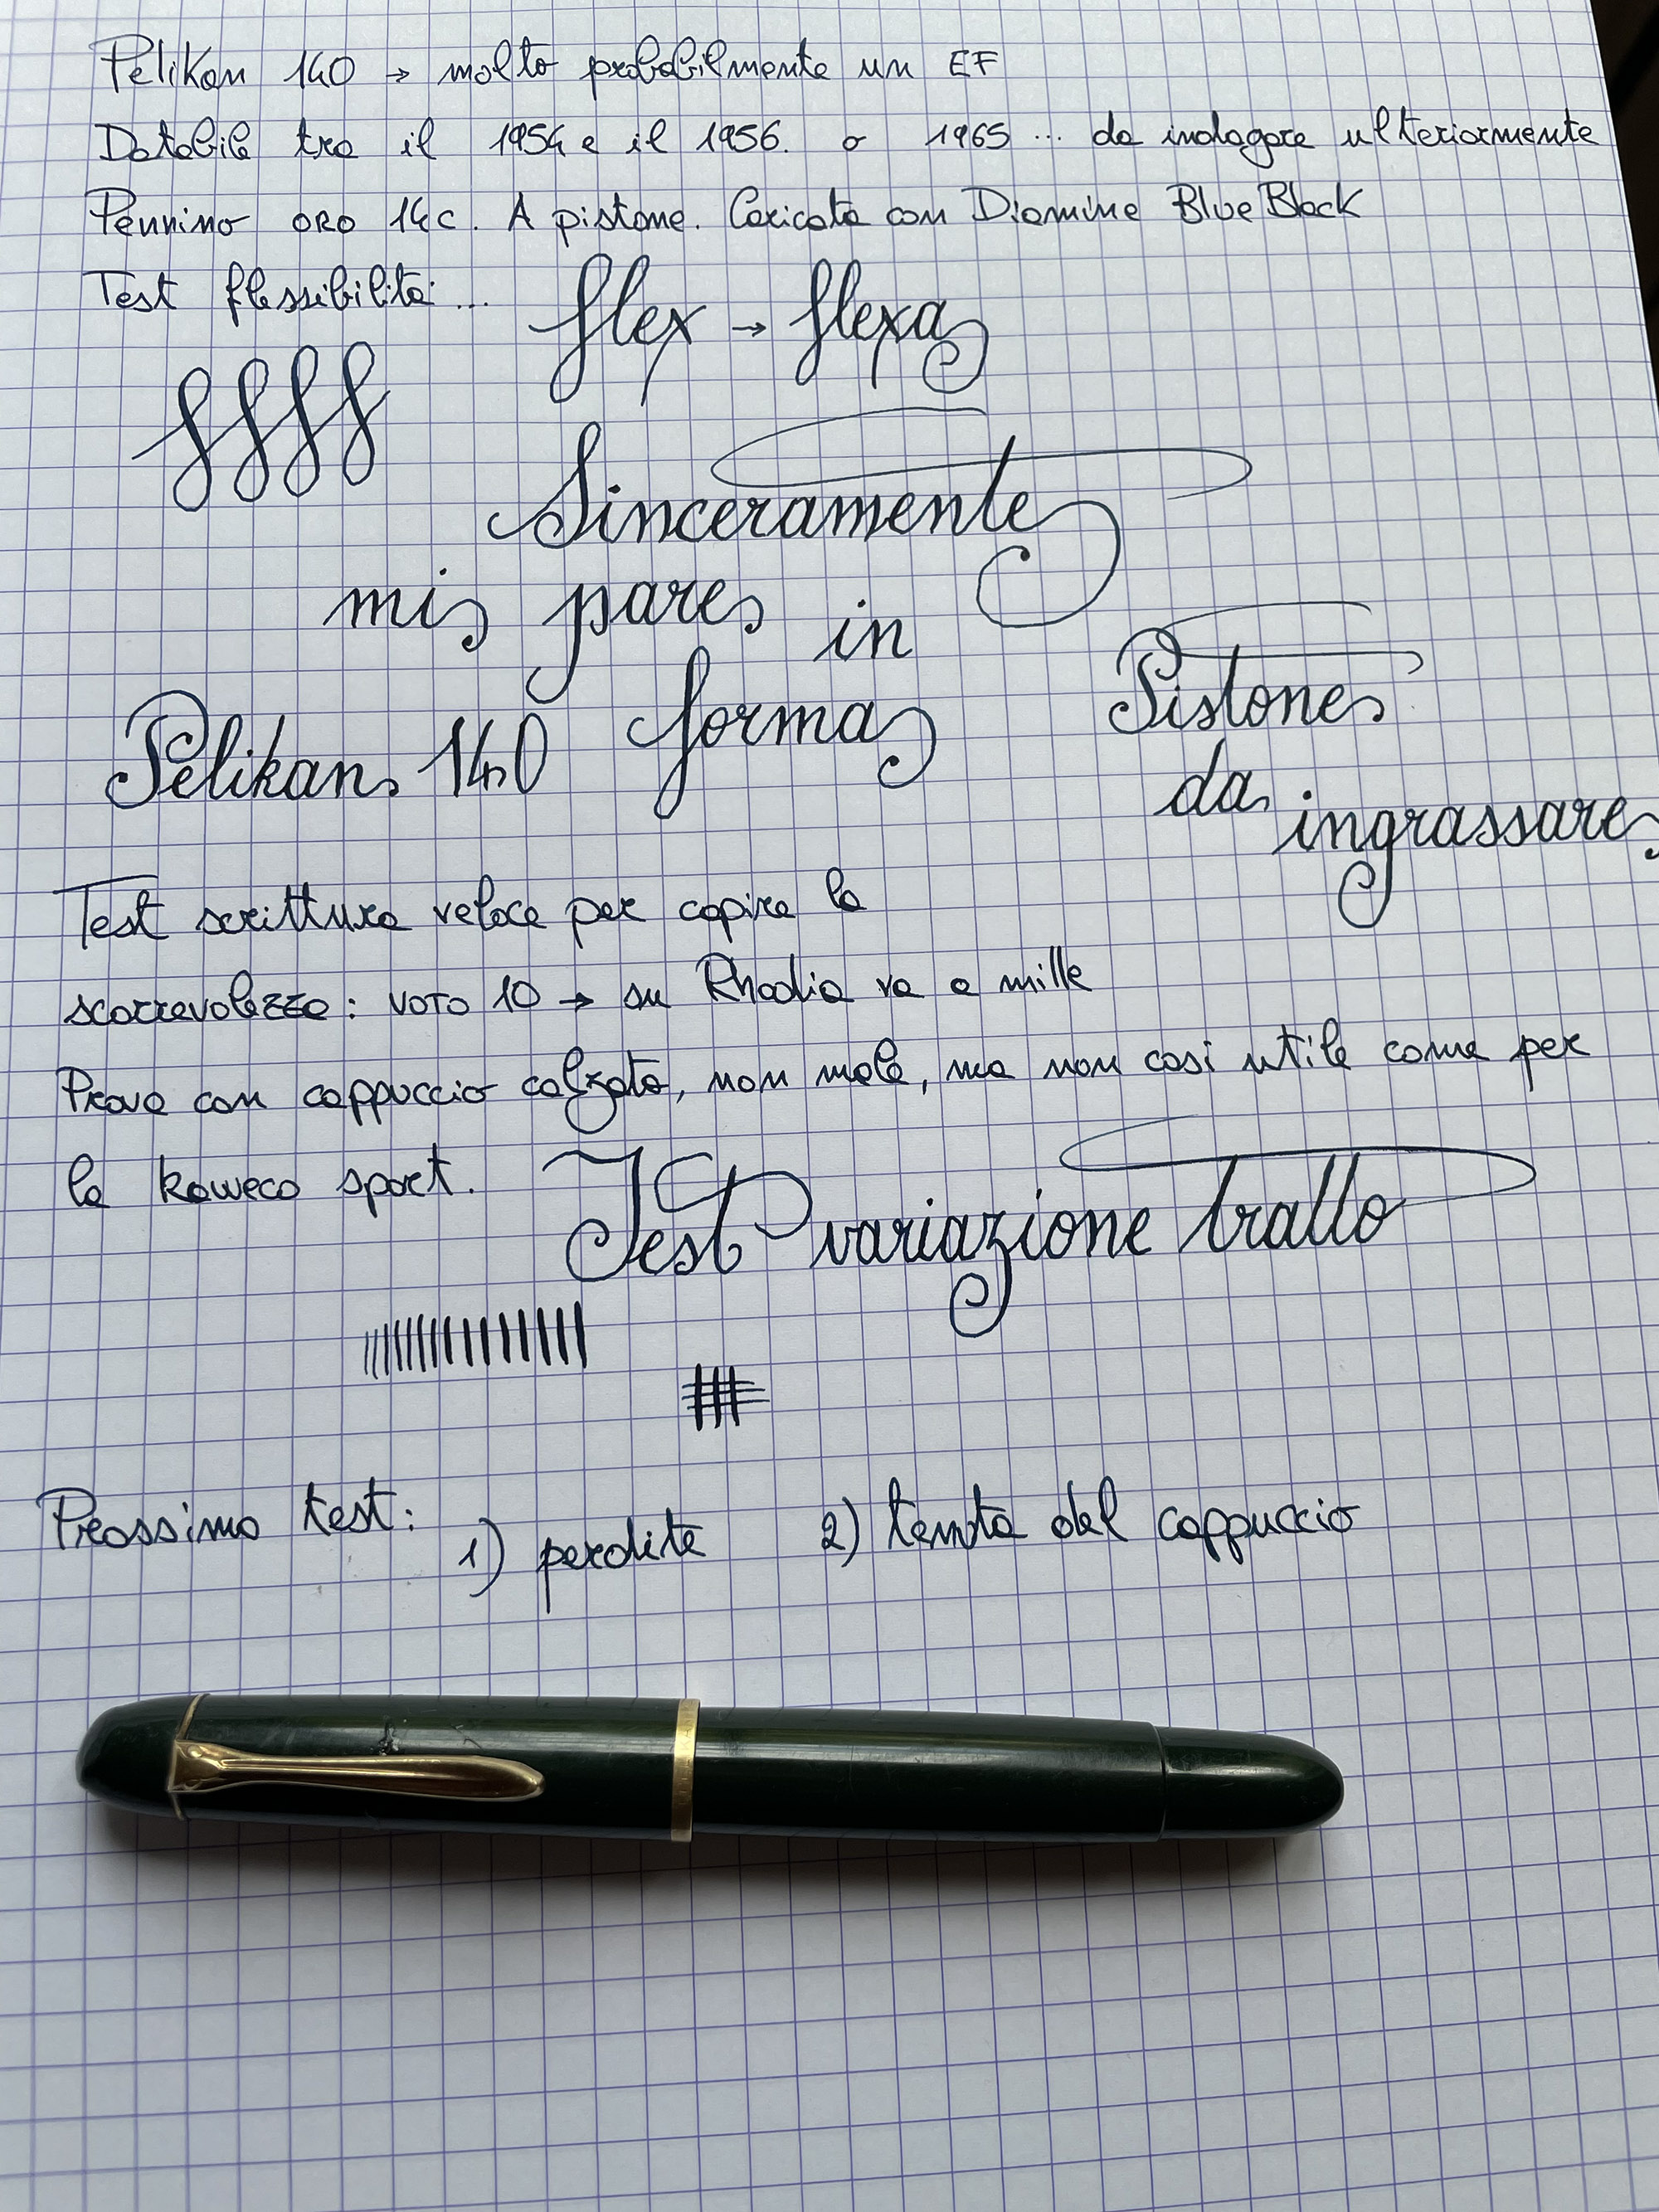 Pelikan 140 → molto probabilmente un EF
Databile tra il 1954 e il 1956. o 1965 ... da indagare ulteriormente
Pennino ORO 14C. A pistone. Caricata con Diamine Blue Black
Test flessibilità: ...
flex → flexa
ffff
Sinceramente
mi pare in
forma
Pelikan 140
Pistone
da ingrassare
Test scrittura veloce per capire la
scorrevolezza: VOTO 10 → su Rhodia va a mille
Prova con cappuccio calzato, non male, ma non così utile come per
la kaweco sport.
Test variazione tratto
Prossimo test:
1) perdite 2) tenuta del cappuccio